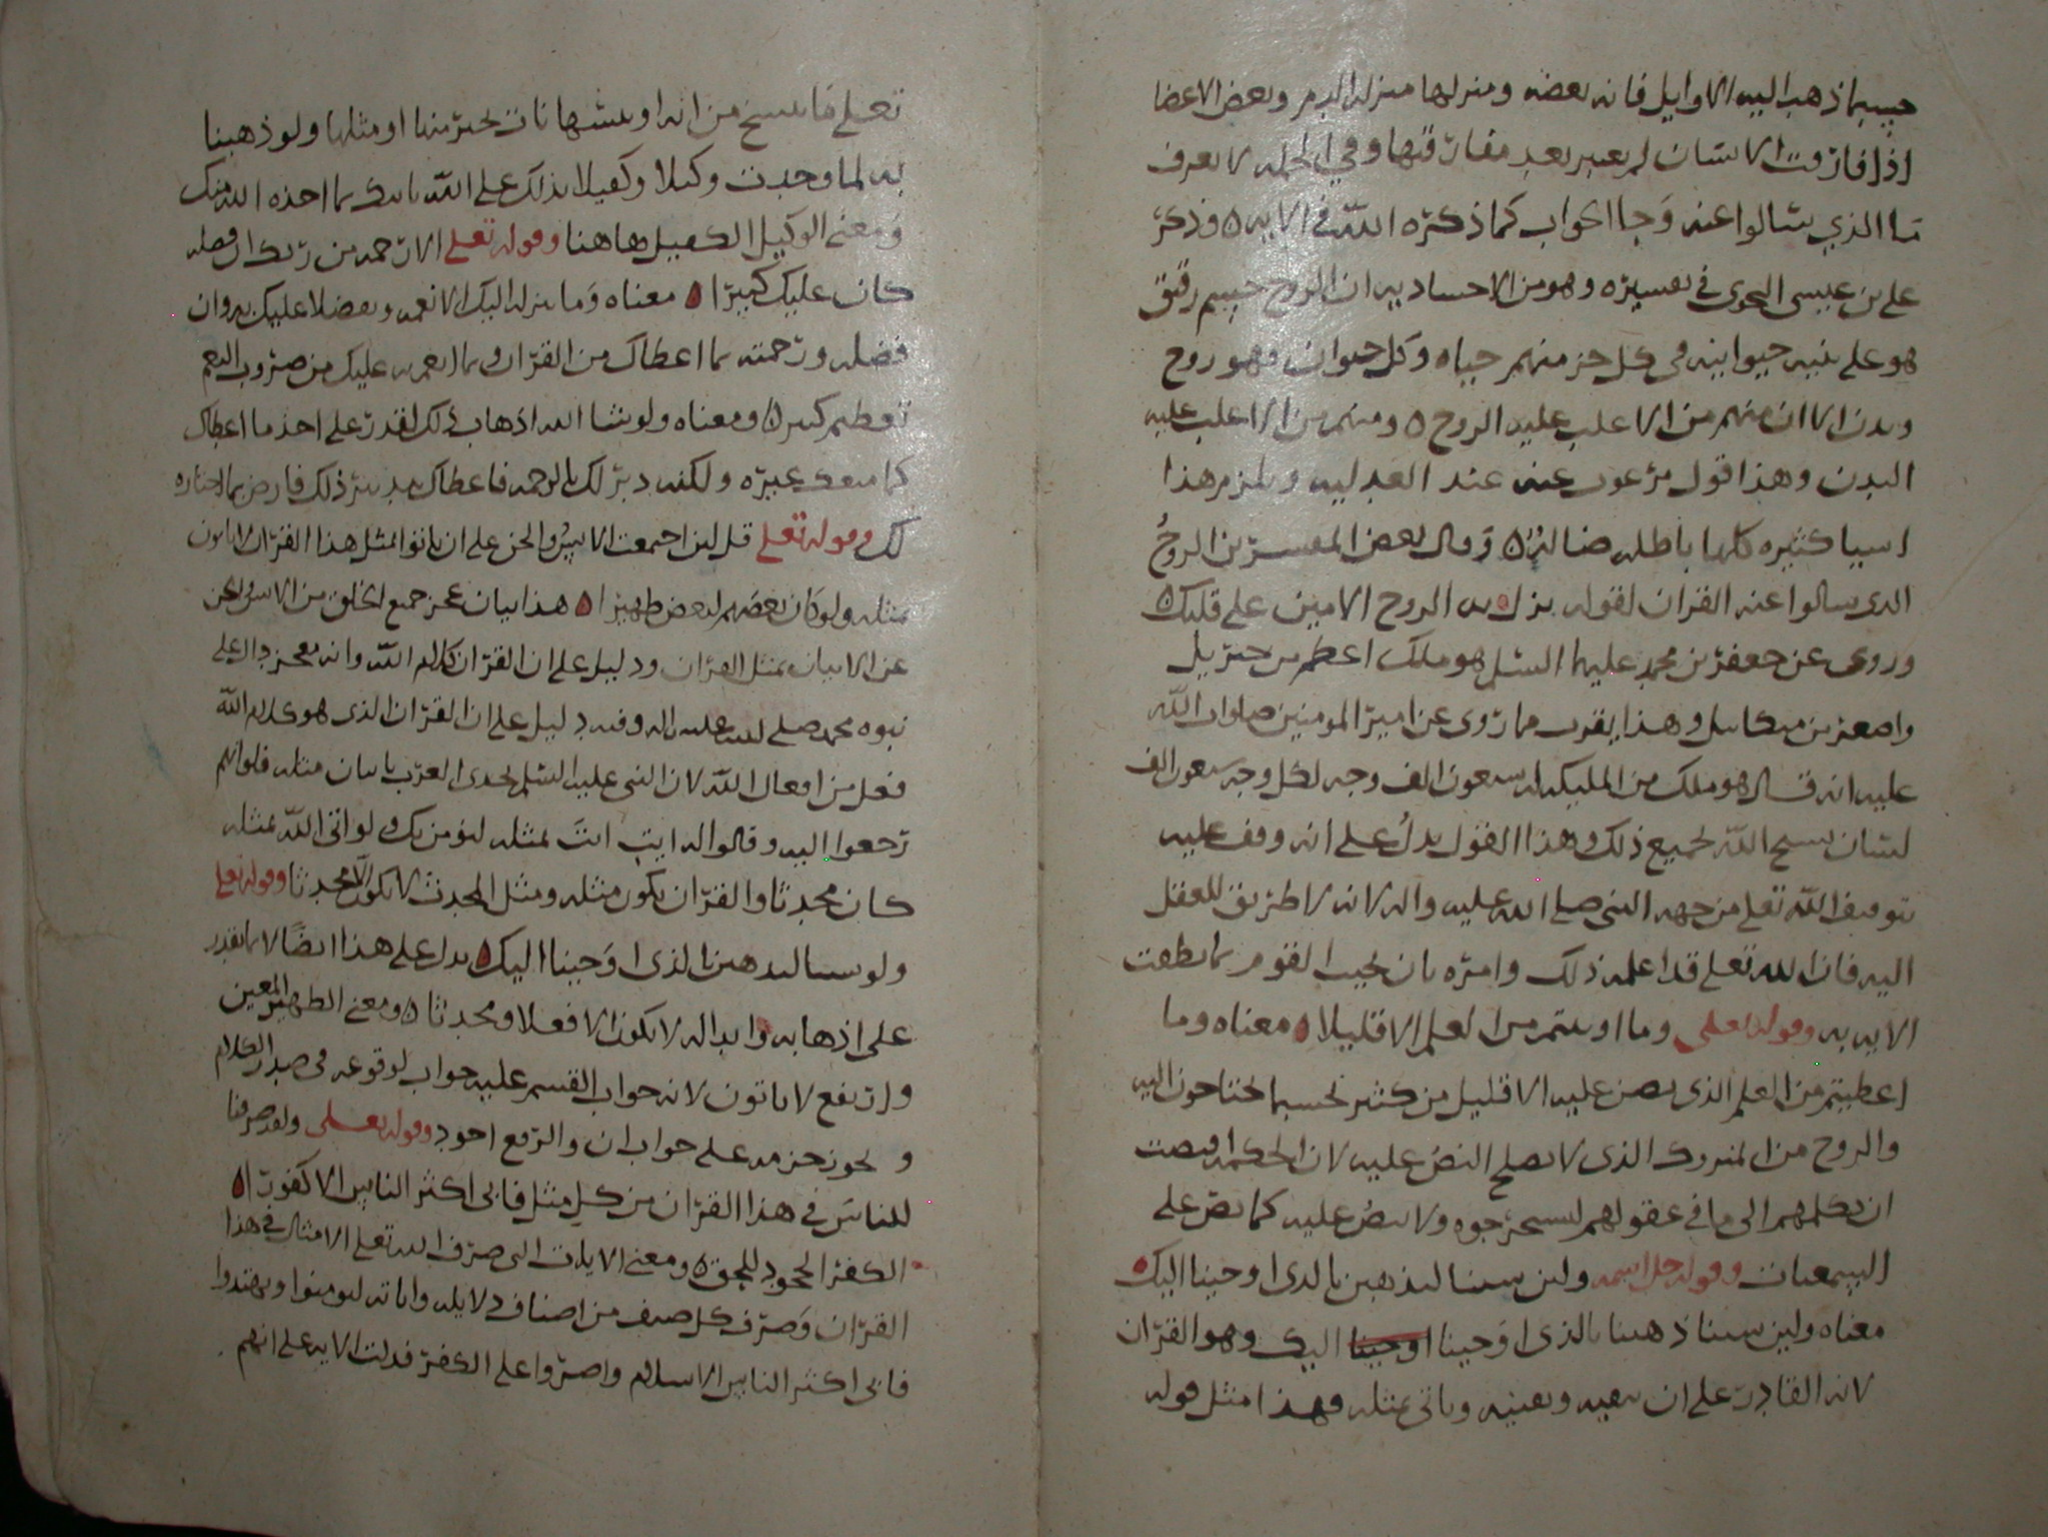 حسبما ذهب اليه الاوايل فانه بعضه ومنزلها منزلة الدم وبعض الاعضا
اذا فارقت الانسان لم يعتبر بعد مفارقتها وفي الجملة لا يعرف
ما الذي سالوا عنه وجا الجواب كما ذكره الله في الايه ه وذكر
علي بن عيسى النحوي في تفسيره وهو من الاحسادبه ان الروح جسم رقيق
هو على بنيه حيوانيه في كل جز منهم حياه وكل حيوان فهو روح
وبدن الا ان منهم من الاغلب عليه الروح ه ومنهم من الاغلب عليه
البدن وهذا قول مرغوب عنه عند العدليه ويلزم هذا
اشيا كثيره كلها باطله ه وقال بعض المفسرين الروح
الذي سالوا عنه القران لقوله نزل به الروح الامين على قلبك ه
وروى عن جعفر بن محمد عليهما السلم هو ملك اعظم من جبريل
واصغر من ميكاييل وهذا يقرب مما روي عن امير المومنين صلوات الله
عليه انه قال هو ملك من المليكه له سبعون الف وجه لكل وجه سبعون الف
لسان يسبح الله لجميع ذلك وهذا القول يدل على انه وقف عليه
بتوقيف الله تعلى من جهه النبي صلى الله عليه واله لانه لا طريق للعقل
اليه فان الله تعلى قد اعلمه ذلك وامره بان يجيب القوم بما نطقت
الايه به وقوله تعلى وما اوتيتم من العلم الا قليلا ه معناه وما
اعطيتم من العلم الذي نص عليه الا قليل من كثير بحسب ما تحتاجون اليه
والروح من المتروك الذي لا يصلح النص عليه لان الحكمه اقتضت
ان يكلهم الى ما في عقولهم ليستخرجوه ولا ينص عليه كما نص على
السمعيات وقوله جل اسمه ولين شينا لنذهبن بالذي اوحينا اليك ه
معناه ولين شينا ذهبنا بالذي اوحينا اوحينا اليك وهو القران
لانه القادر على ان يعيد وياتي بمثله فهذا مثل قوله
تعلى ما ننسخ من ايه او ننسها نات بخير منها او مثلها ولو ذهبنا
به لما وجدت وكيلا وكفيلا بذلك على الله ياتيك بما اخذه الله منك
ومعنى الوكيل الكفيل هاهنا وقوله تعلى الا رحمه من ربك ان فضله
كان عليك كبيرا ه معناه وما نزله اليك الا نعمه وتفضلا عليك به وان
فضله ورحمته بما اعطاك من القران وبما انعم به عليك من ضروب النعم
تعظم كبير ه ومعناه ولو شا الله اذهاب ذلك لقدر على اخذ ما اعطاك
كما منعه غيره ولكنه دبر لك بالرحمه فاعطاك ذلك فارض بما اختاره
لك وقوله تعلى قل لين اجتمعت الانس والجن على ان ياتوا بمثل هذا القران لا ياتون
بمثله ولو كان بعضهم لبعض ظهيرا ه هذا بيان عجز جميع الخلق من الانس والجن
عن الاتيان بمثل القران ودليل على ان القران كلام الله وانه معجز دال على
نبوه محمد صلى الله عليه واله وفيه دليل على ان القران الذي هو كلام الله
فعل من افعال الله لان النبي عليه السلم تحدى العرب باتيان مثله فلو انهم
رجعوا اليه وقالوا له ايت انت بمثله لنومن بك ولو اتى الله بمثله
كان محدثا والقران يكون مثله ومثل المحدث لا يكون الا محدثا وقوله تعلى
ولو شينا لنذهبن بالذي اوحينا اليك ه يدل على هذا ايضا لان ما نقدر
على اذهابه وابداله لا يكون الا فعلا ومحدثا ه ومعنى الظهير المعين
وارتفع لا ياتون لانه جواب القسم عليه جواب لوقوعه في صدر الكلام
ويجوز جزمه على جواب ان والرفع اجود وقوله تعلى ولقد صرفنا
للناس في هذا القران من كل مثل فابى اكثر الناس الا كفورا ه
الكفر الجحود للحق ه ومعنى الايات التي صرف الله تعلى الامثال في هذا
القران وصرف كل صنف من اصناف دلايله واياته ليومنوا ويهتدوا
فابى اكثر الناس الاسلام واصروا على الكفر فدلت الايه على انهم